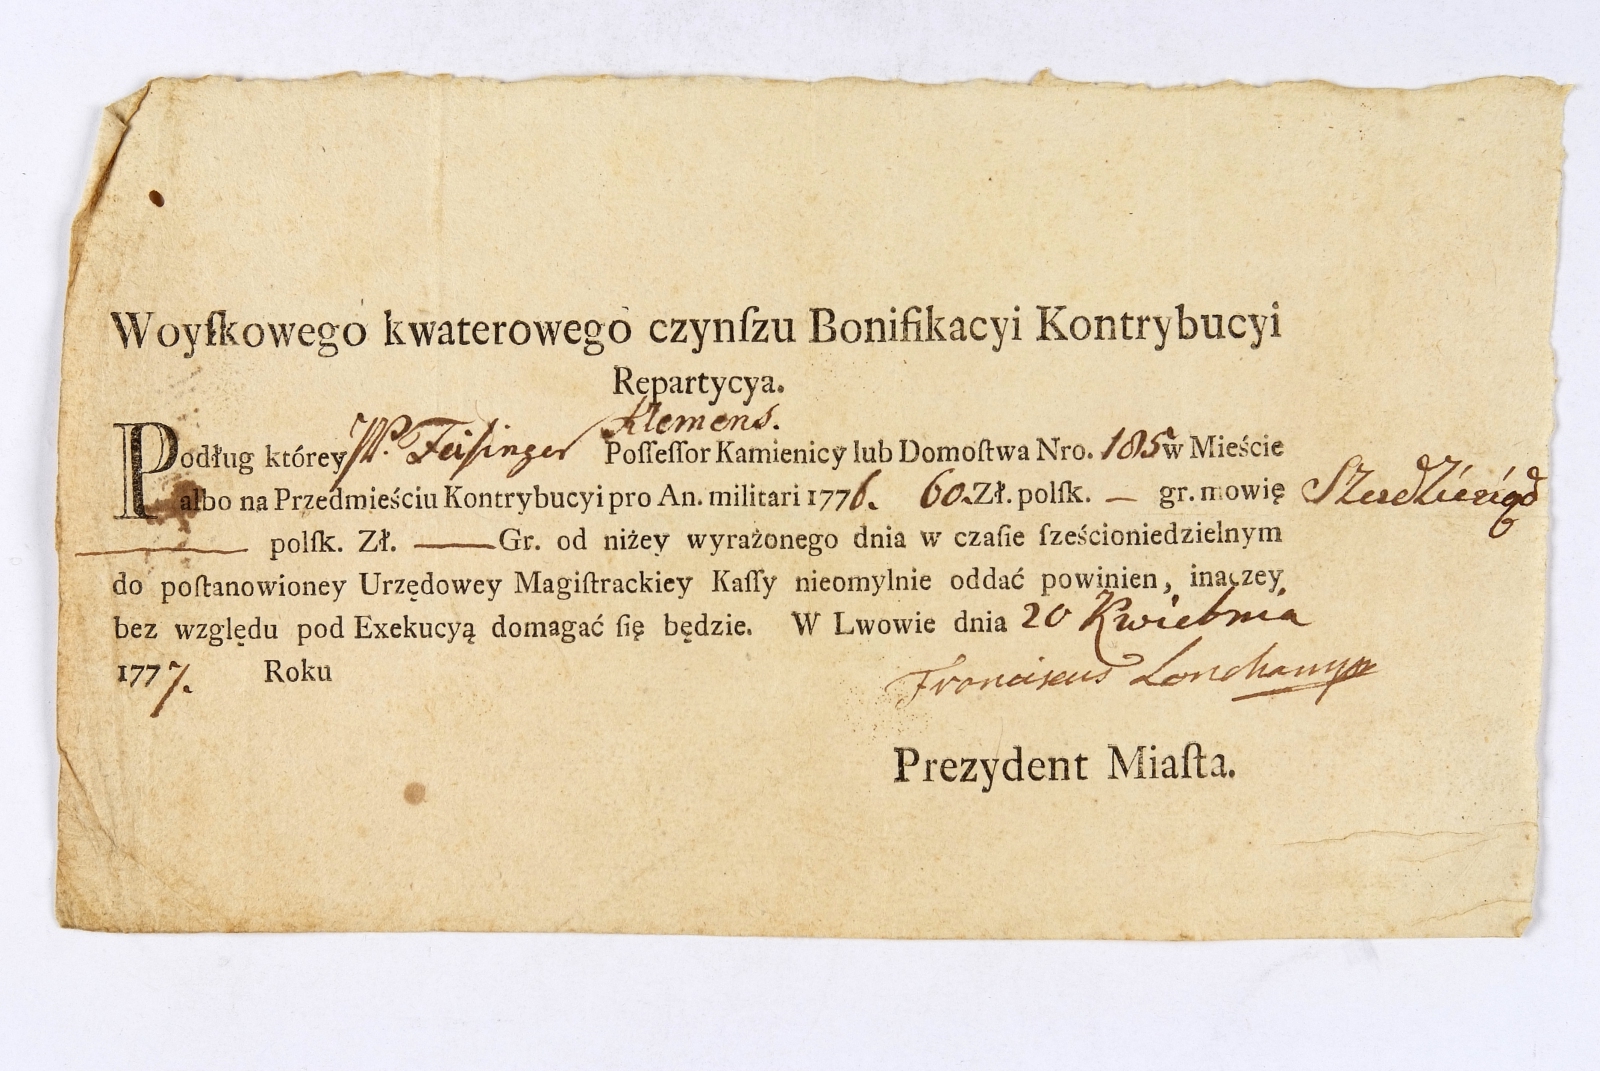 Woyſkowego kwaterowego czynſzu Bonifikacyi Kontrybucyi
Repartycya.
Klemens.
Podług którey JP. Feiſinger Poſſeſſor Kamienicy lub Domoſtwa Nro. 185 w Mieście
albo na Przedmieściu Kontrybucyi pro An. militari 1776. 60. Zł. polſk. — gr. mowię Szesdziesiąd
— polſk. Zł. — Gr. od niżey wyrażonego dnia w czaſie ſześcioniedzielnym
do poſtanowioney Urzędowey Magiſtrackiey Kaſſy nieomylnie oddać powinien, inaczey,
bez względu pod Exekucyą domagać ſię będzie. W Lwowie dnia 20 Kwietnia
1777. Roku
Franciscus Lonchamps
Prezydent Miaſta.